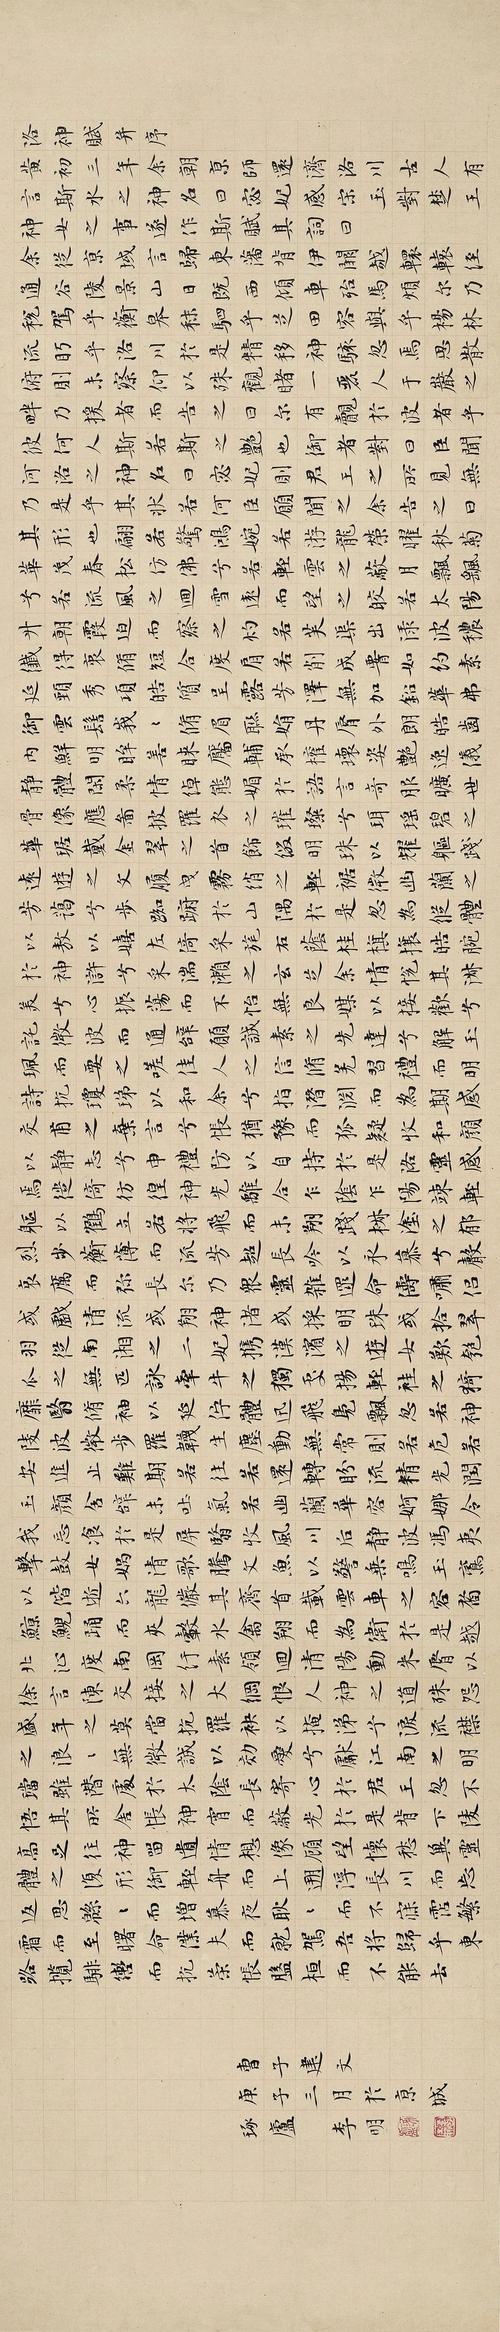 洛神賦并序
黃初三年余朝京師還濟洛川古人有
言斯水之神名曰宓妃感宋玉對楚王
神女之事遂作斯賦其詞曰
余從京域言歸東藩背伊闕越轘轅徑
通谷陵景山日既西傾車殆馬煩尔乃
税駕乎蘅皋秣駟乎芝田容與乎楊林
流眄乎洛川於是精移神駭忽焉思散
俯則未察仰以殊觀睹一麗人于巖之
畔乃援者而告之曰尔有覿於波者乎
彼何人斯若斯之艷也御者對曰臣聞
河洛之神名曰宓妃則君王之所見無
乃是乎其狀若何臣願聞之余告之曰
其形也翩若驚鴻婉若游龍榮曜秋菊
華茂春松仿佛兮若輕雲之蔽月飄飖
兮若流風之迴雪遠而望之皎若太陽
升朝霞迫而察之灼若芙渠出淥波穠
纖得衷脩短合度肩若削成署如約素
延頸秀項皓質呈露芳澤無加鉛華弗
御雲髻峩〻脩眉聯娟丹脣外朗皓齒
內鮮明眸善睞靨輔承權瓌姿艷逸儀
靜體閑柔情倬態媚於語言奇服曠世
骨像應圖披羅衣之璀璨兮珥瑤碧之
華琚戴金翠之首飾綴明珠以耀軀踐
遠遊之文履曳霧綃之輕裾微幽蘭之
芳藹兮步踟躕於山隅於是忽焉縱體
以遨以嬉左倚采旄右蔭桂旗攘皓腕
於神滸兮采湍瀨之玄芝余情悅其淑
美兮心振蕩而不怡無良媒以接歡兮
託微波而通辭願誠素之先達兮解玉
珮而要之嗟佳人之信脩羌習禮而明
詩抗瓊珶以和余兮指潛淵而為期感
交甫之棄言兮悵猶豫而狐疑收和顏
以靜志兮申禮防以自持於是洛靈感
焉徙倚彷徨神光離合乍陰乍陽竦輕
軀以鶴立若將飛而未翔踐椒塗之郁
烈步蘅薄而流芳超長吟以永慕兮聲
哀厲而彌長尔乃眾靈雜遝命儔嘯侶
或戲清流或翔神渚或採明珠或拾翠
羽從南湘之二妃携漢濱之遊女歎匏
瓜之無匹詠牽牛之獨處揚輕袿之猗
靡翳脩袖以延佇體迅飛鳧飄忽若神
陵波微步羅韈生塵動無常則若危若
安進止難期若往若還轉盼流精光潤
玉顏含辭未吐氣若幽蘭華容婀娜令
我忘飡於是屏翳收風川后靜波馮夷
擊鼓女媧清歌騰文魚以警乘鳴玉鸞
以偕逝六龍儼其齊首載雲車之容裔
鯨鯢踊而夾轂水禽翔而為衛於是越
北沚度南岡行素領迴清陽動朱脣以
徐言陳交接之大綱恨人神之道殊怨
盛年之莫當抗羅袂以掩涕兮淚流襟
之浪〻無微誠以効愛兮獻江南之明
璫雖潛處於太陰長寄心於君王忽不
悟其所舍悵神宵而蔽光於是背下陵
高足往神留遺情想像顧望懷愁冀靈
體之復形御輕舟而上遡浮長川而忘
返思緜〻而增慕夜耿〻而不寐霑繁
霜而至曙命僕夫而就駕吾將歸乎東
路攬騑轡而抗策悵盤桓而不能去
曹子建文
庚子三月於京城
琢廬李明